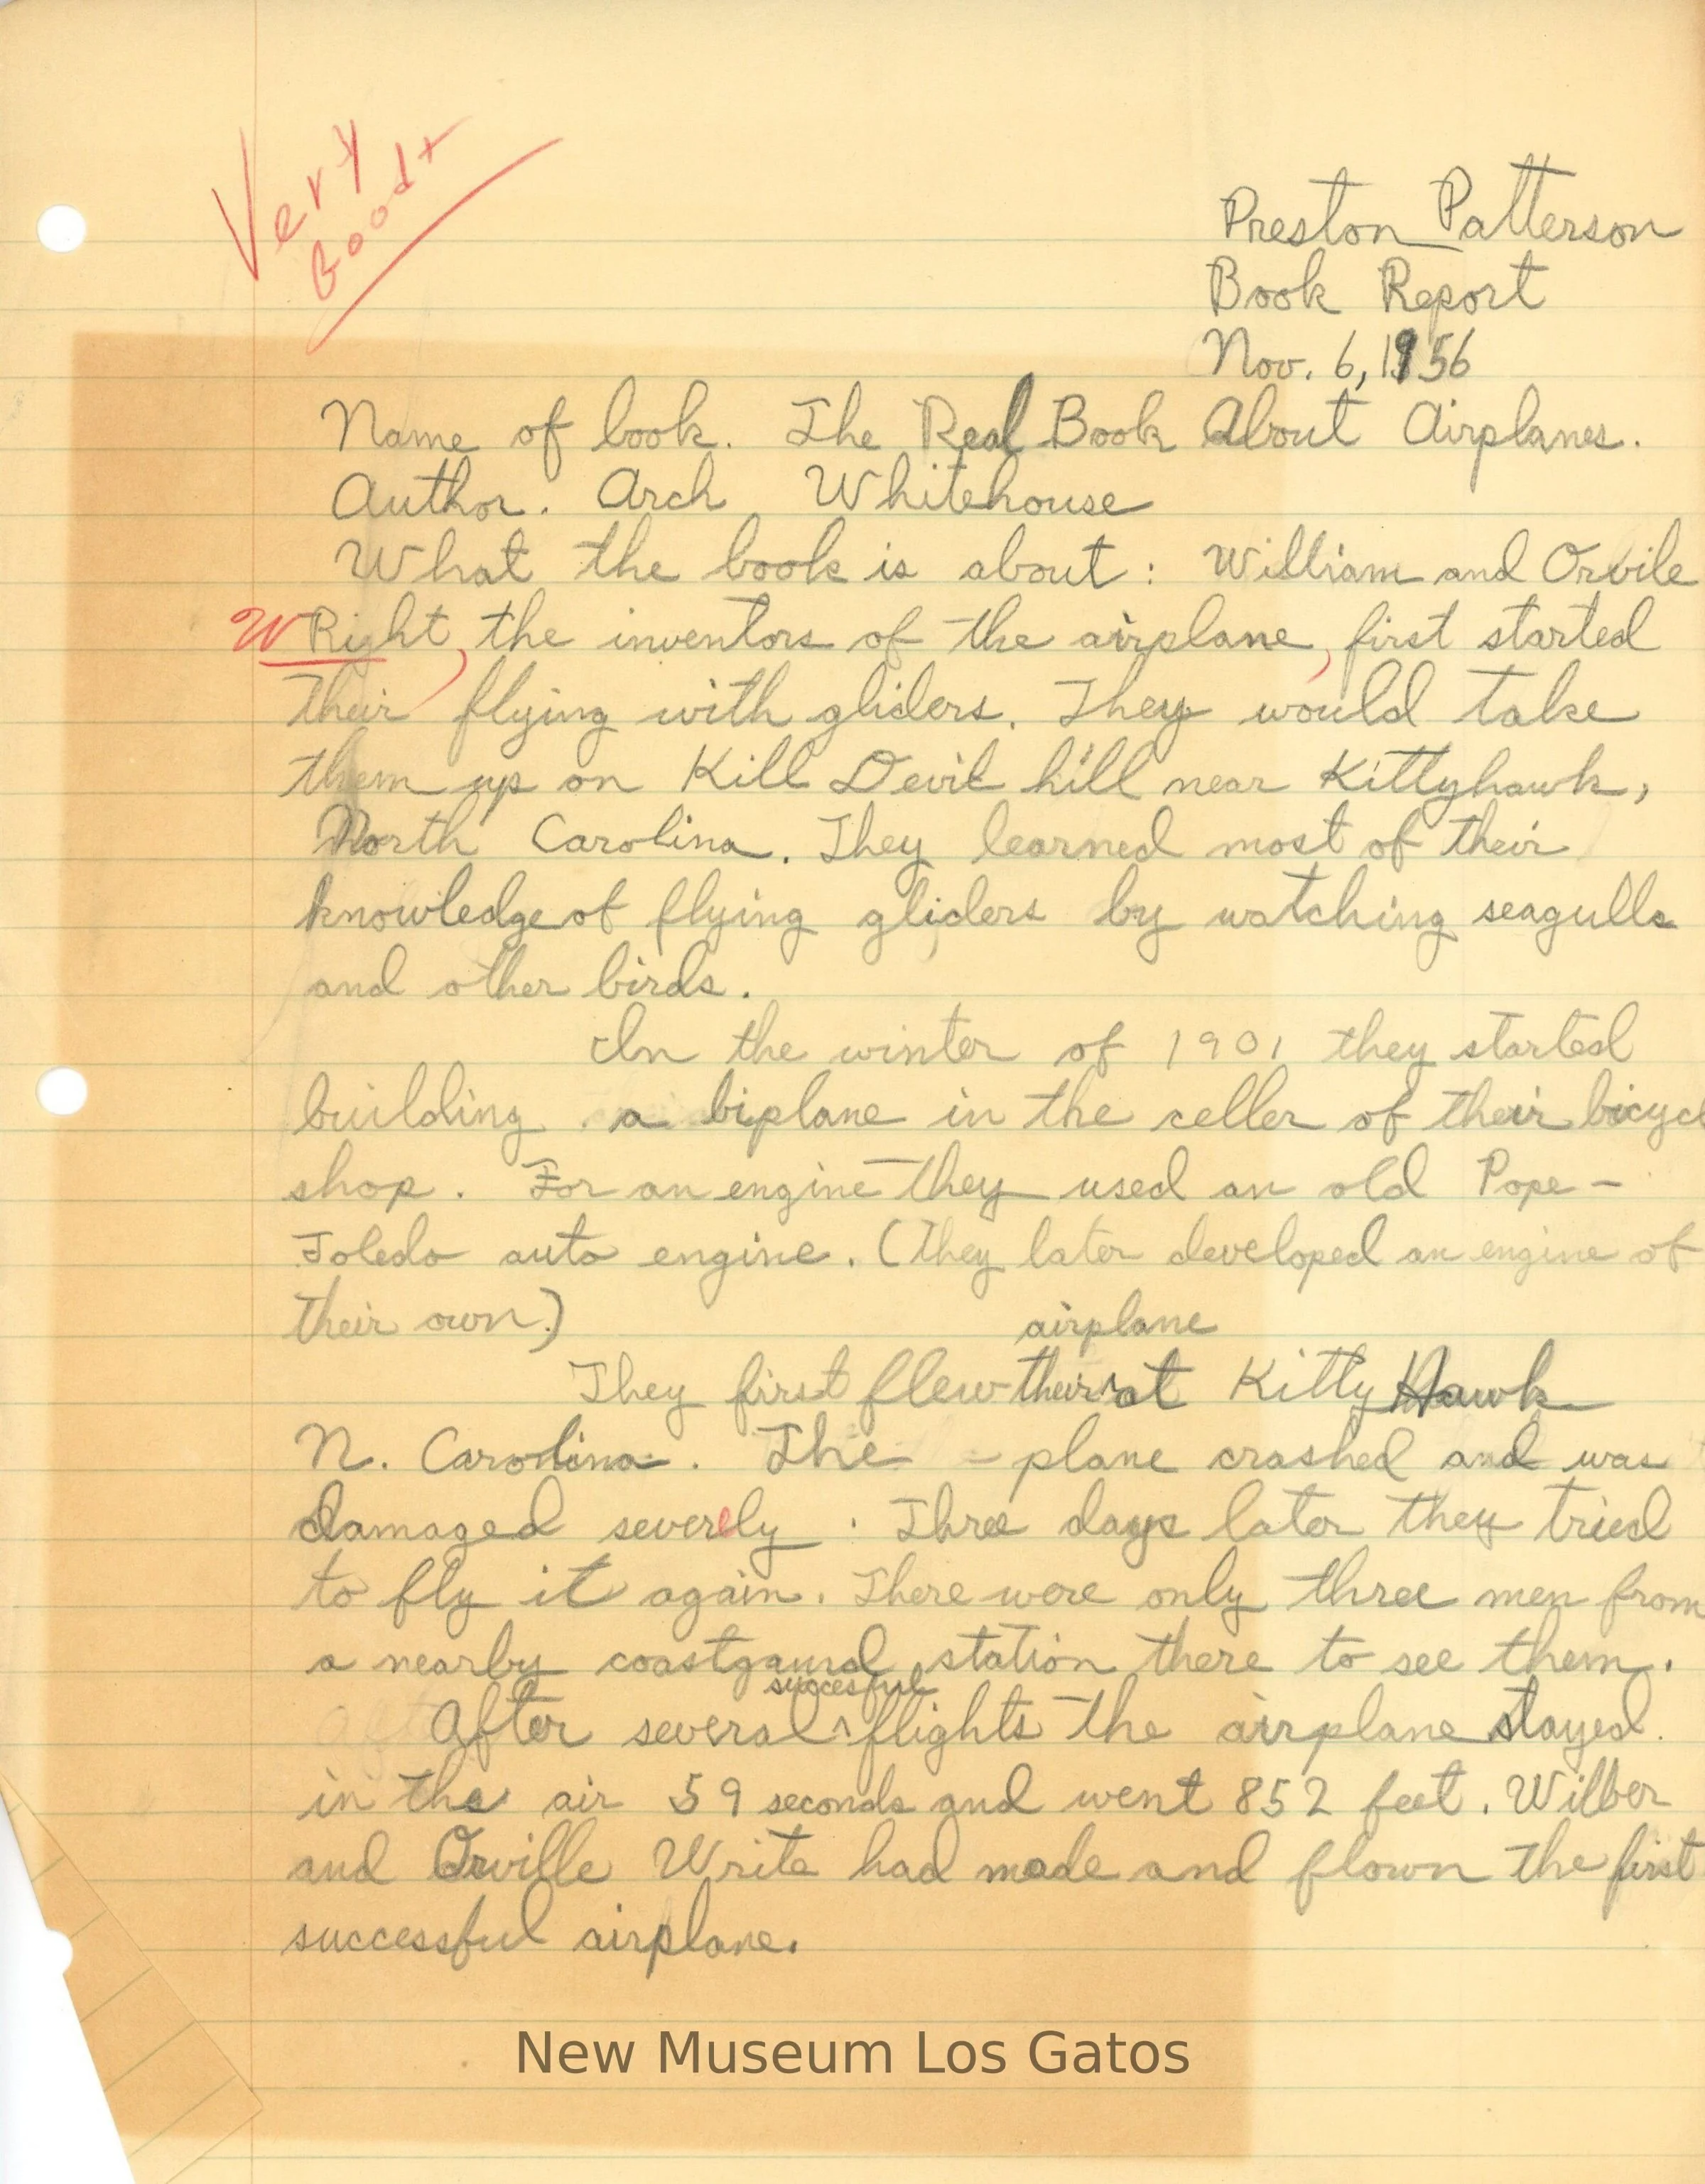 Very
Good+
Preston Patterson
Book Report
Nov. 6, 1956
Name of book. The Real Book About Airplanes.
Author. Arch Whitehouse
What the book is about: William and Orvile
WRight, the inventors of the airplane, first started
their flying with gliders. They would take
them up on Kill Devil hill near Kittyhawk,
North Carolina. They learned most of their
knowledge of flying gliders by watching seagulls
and other birds.
In the winter of 1901 they started
building a biplane in the celler of their bicycl
shop. For an engine they used an old Pope-
Toledo auto engine. (They later developed an engine of
their own.)
airplane
They first flew their ^ at Kitty Hawk
N. Carolina. The - plane crashed and was
damaged severely. Three days later they tried
to fly it again. There were only three men from
a nearby coastgaurd station there to see them.
succesful
After several ^ flights the airplane stayed
in the air 59 seconds and went 852 feet. Wilber
and Orville Write had made and flown the first
successful airplane.
New Museum Los Gatos